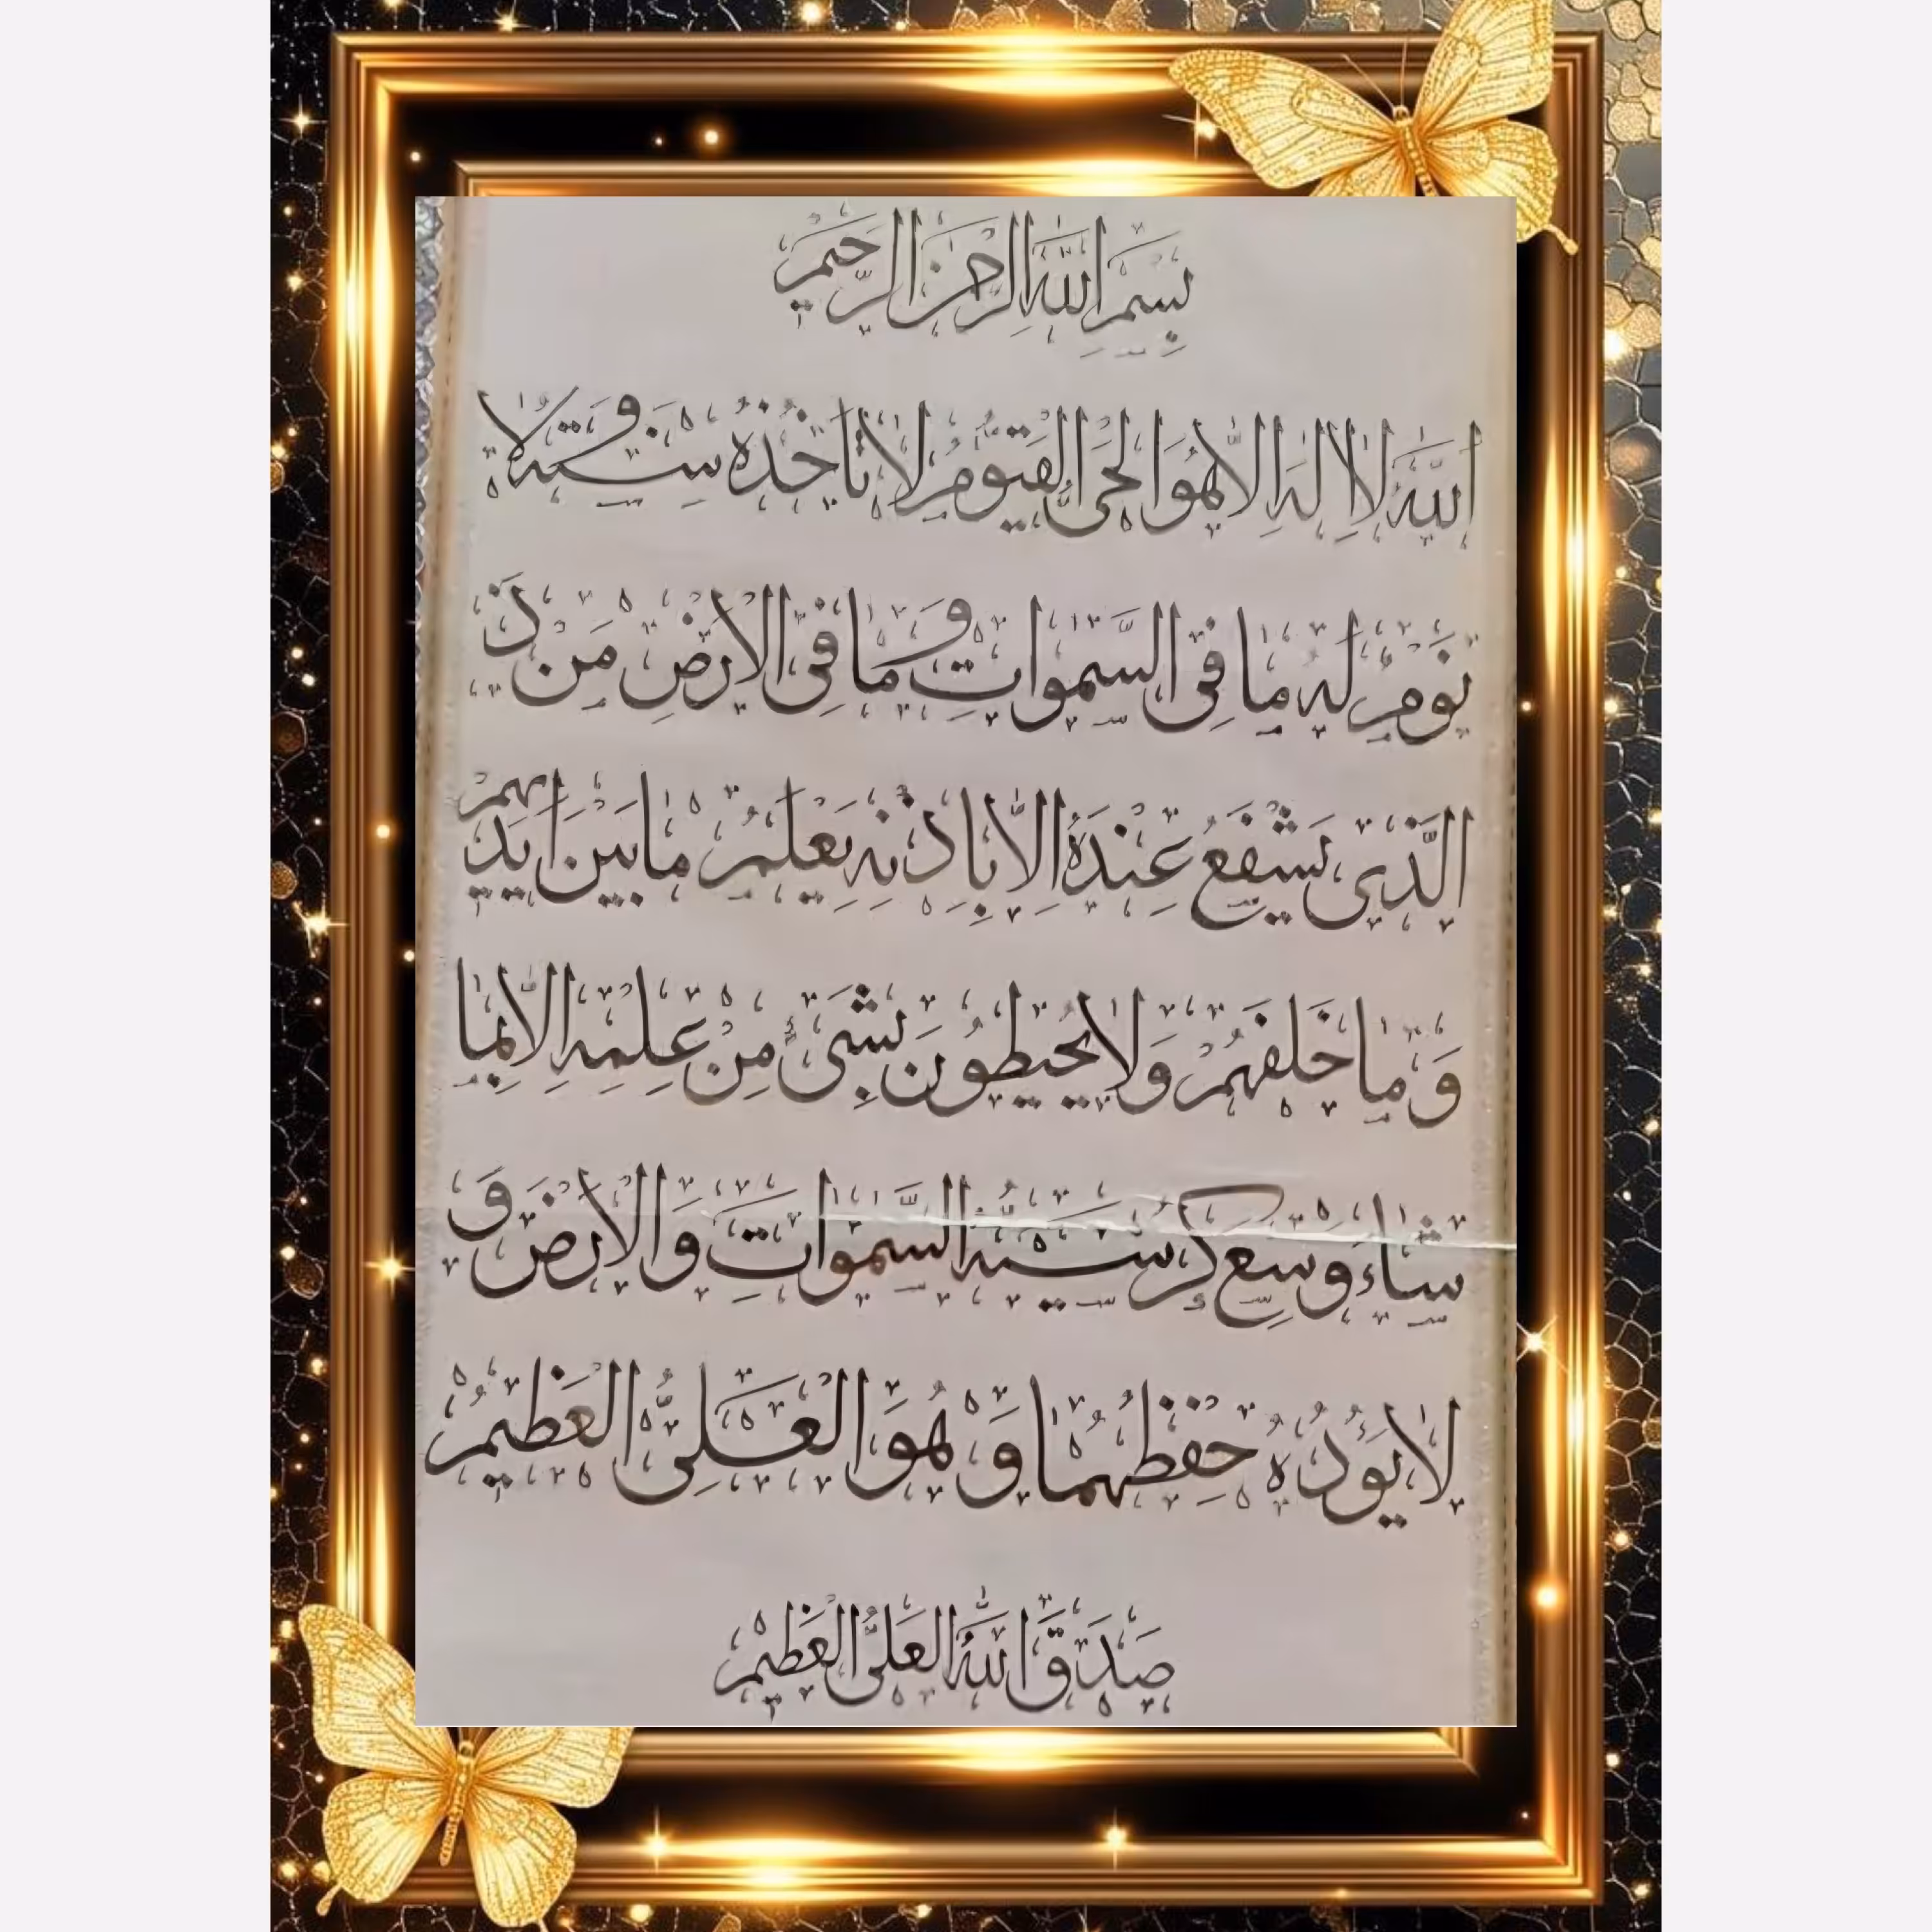 بِسْمِ اللَّهِ الرَّحْمٰنِ الرَّحِيْمِ
اَللَّهُ لَا اِلٰهَ اِلَّا هُوَ الْحَيُّ الْقَيُّومُ لَا تَاْخُذُهُ سِنَةٌ وَلَا
نَوْمٌ لَهُ مَا فِى السَّمٰوَاتِ وَمَا فِى الْاَرْضِ مَنْ ذَ
الَّذِى يَشْفَعُ عِنْدَهُ اِلَّا بِاِذْنِهِ يَعْلَمُ مَا بَيْنَ اَيْدِيهِمْ
وَمَا خَلْفَهُمْ وَلَا يُحِيطُونَ بِشَىْءٍ مِنْ عِلْمِهِ اِلَّا بِمَا
شَاءَ وَسِعَ كُرْسِيُّهُ السَّمٰوَاتِ وَالْاَرْضَ وَ
لَا يَؤُدُهُ حِفْظُهُمَا وَهُوَ الْعَلِىُّ الْعَظِيمُ
صَدَقَ اللَّهُ الْعَلِىُّ الْعَظِيْمُ